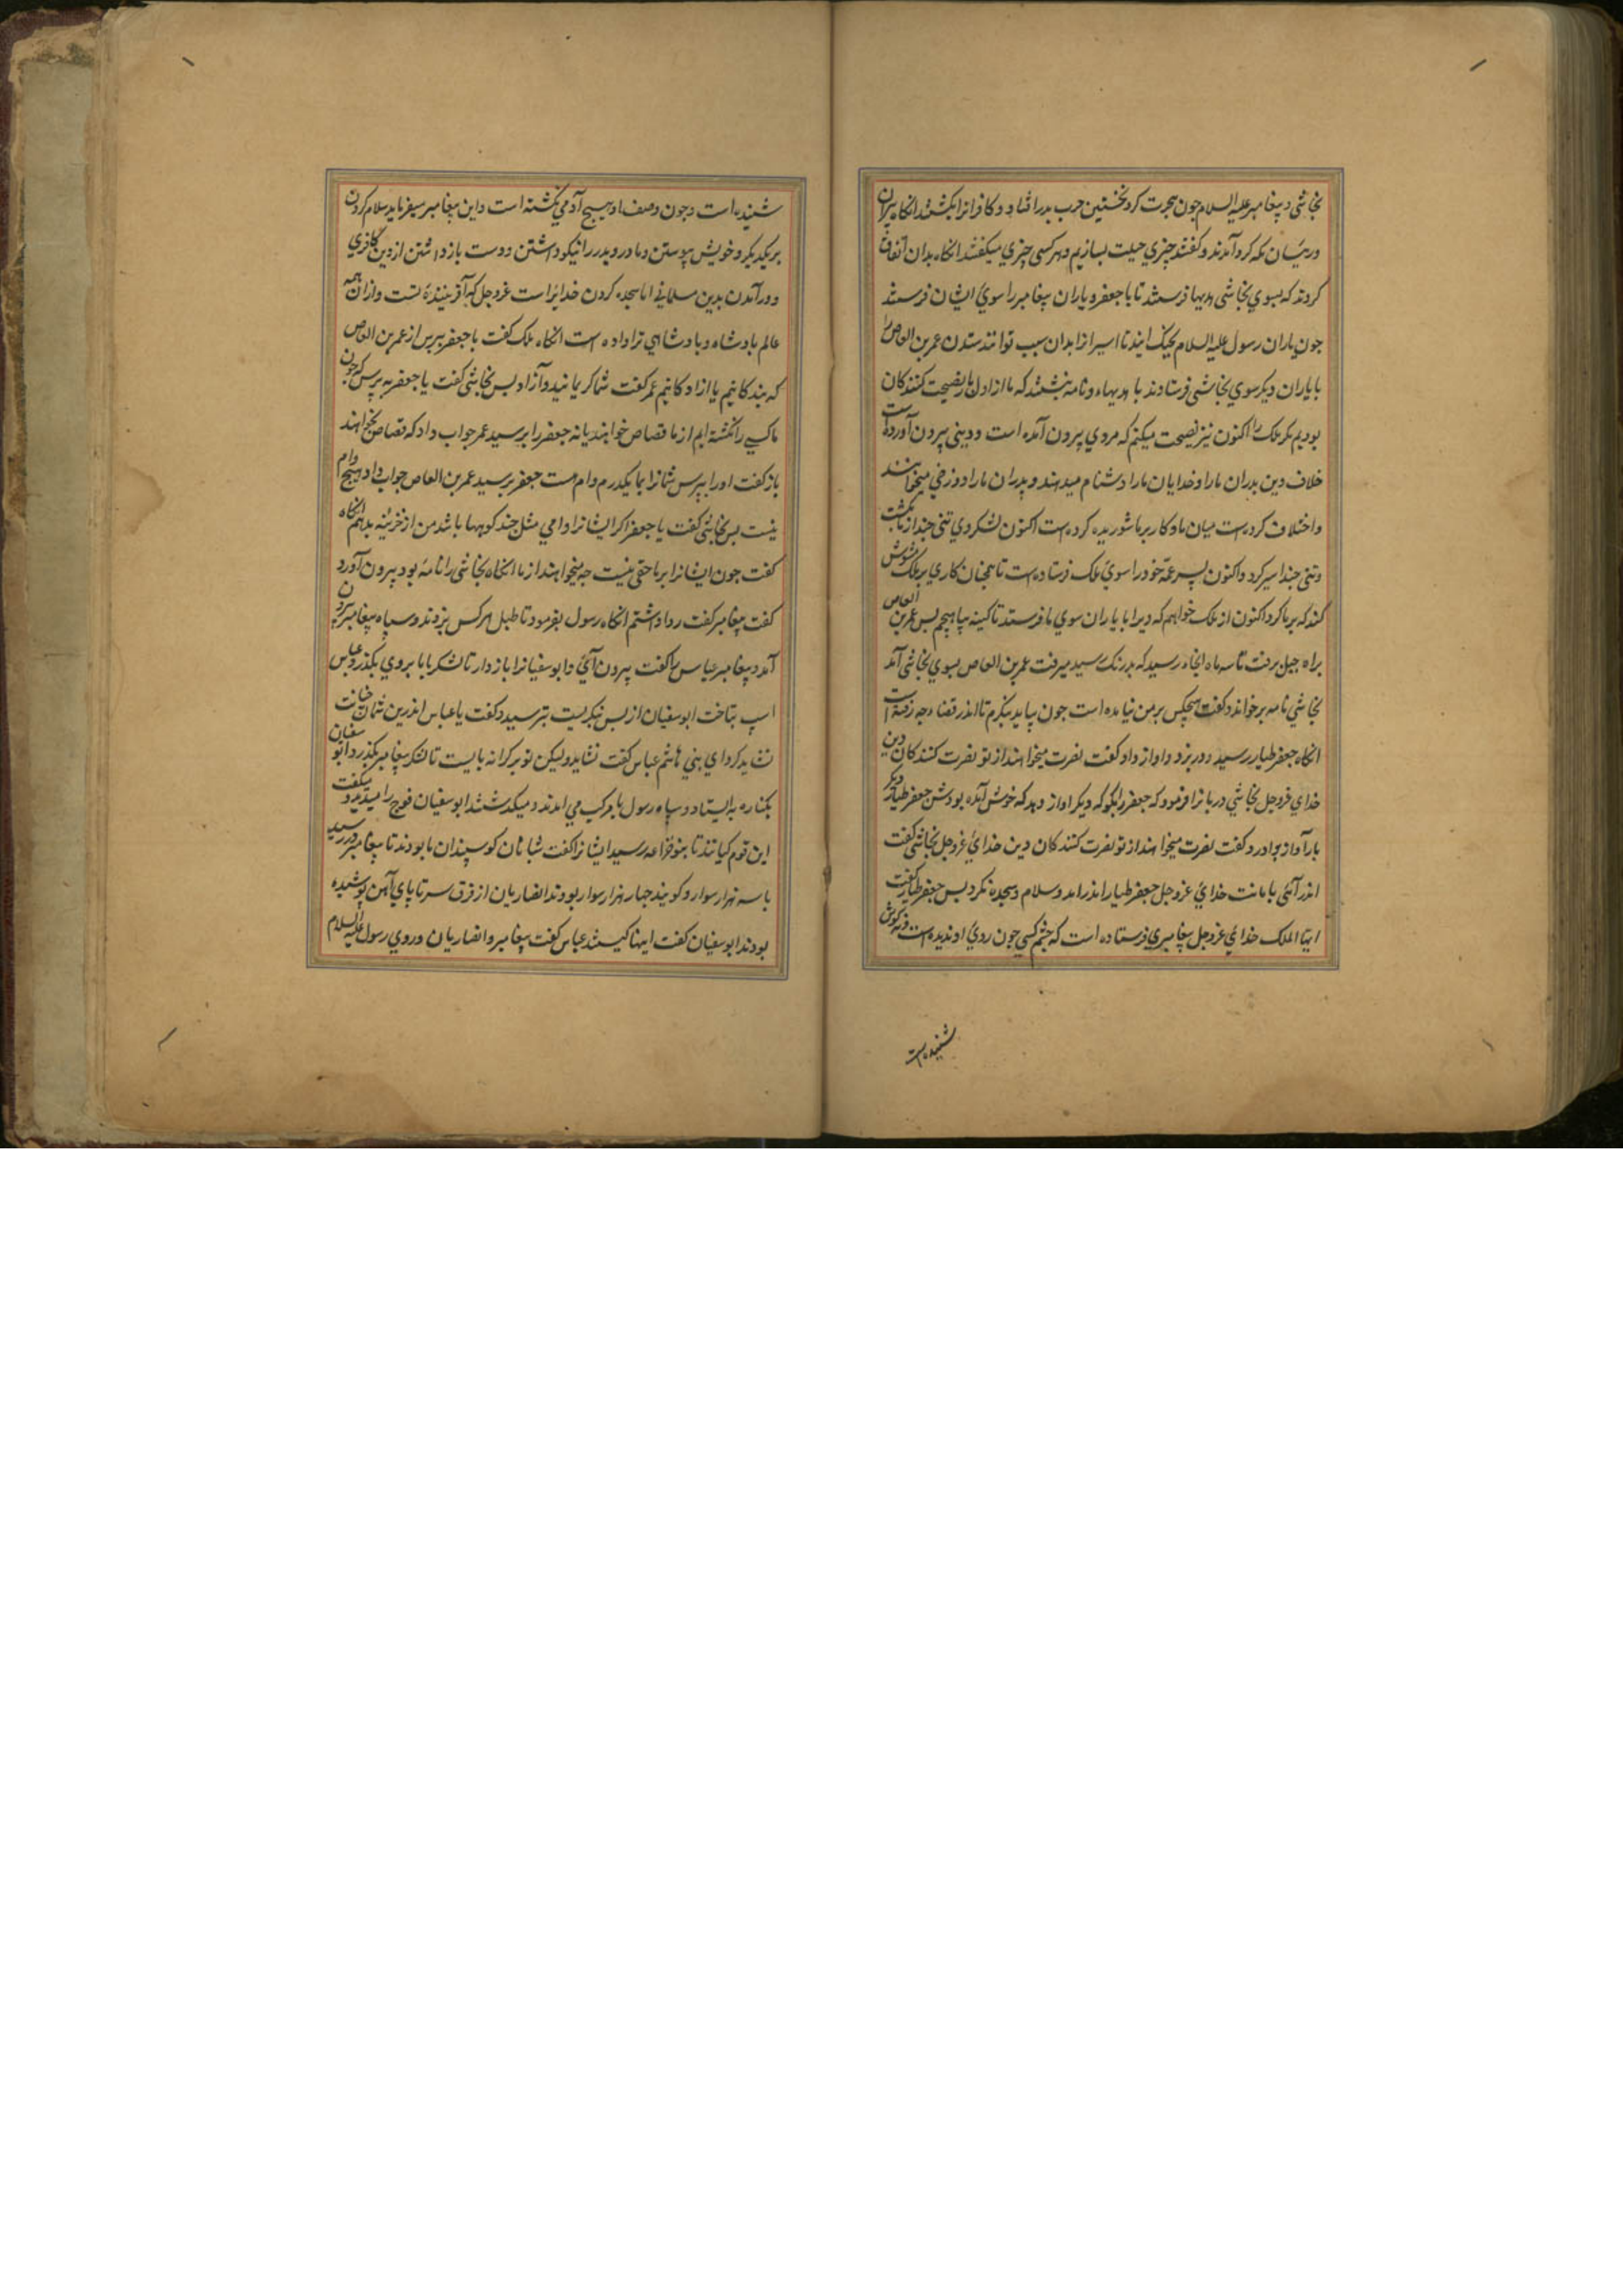 نجاشی و پیغامبر علیه السلام چون هجرت کرد نخستین حرب بدر افتاد و کافرانرا بکشتند انکاه پیران
و رییسان مکه کرد آمدند و کفتند چیزی حیلت بسازیم و هر کسی چیزی میکفتند انکاه بدان اتفاق
کردند که بسوی نجاشی هدیها فرستند تا با جعفر و یاران پیغامبر را سوی ایشان فرستد
چون یاران رسول علیه السلام بجنک ایند تا اسیرانرا بدان سبب توانند ستدن عمر بن العاص را
با یاران دیکر سوی نجاشی فرستادند با هدیهاء و نامه بنشتند که ما از اول باز نصیحت کنندکان
بودیم مر ملک را اکنون نیز نصیحت میکنم که مردی بیرون آمده است و دینی بیرون آورده است
خلاف دین پدران ما را و خدایان ما را دشنام میدهند و پدران ما را دوزخی میخوانند
و اختلاف کرده است میان ما و کار بر ما شوریده کرده است اکنون لشکر دی تنی چند از ما بکشت
و تنی چند اسیر کرد و اکنون پسر عمّه خود را سوی ملک فرستاده است تا همچنان کاری بر ملک شورش
کند که بر ما کرد اکنون از ملک خواهم که ویرا با یاران سوی ما فرستد تا کینه بیاهیجم بس عمر بن العاص
براه جبل برفت تا سه ماه انجا رسید که بدرنک رسید میرفت عمر بن العاص بسوی نجاشی آمد
نجاشی نامه برخواند و کفت هیچکس بر من نیامده است چون بیاید بنکرم تا اندر قضاء چه رفته است
انکاه جعفر طیار در رسید و در بزد و اواز داد و کفت نصرت میخواهند از تو نصرت کنندکان دین
خدای عزوجل نجاشی دربانرا فرمود که جعفر را بکو که دیکر اواز دهد که خوش آمده بودش جعفر طیار دیکر
بار آواز بر آورد و کفت نصرت میخواهند از تو نصرت کنندکان دین خدای عزوجل نجاشی کفت
اندر آئی با مانت خدای عزوجل جعفر طیار اندر امد و سلام و سجده نکرد بس جعفر طیار کفت
ایها الملک خدای عزوجل پیغامبری فرستاده است که چشم کسی چون روی او ندیده است و نه کوش
شنیده است
شنیده است و چون وصف او هیچ آدمی نکشته است و این پیغامبر میفرماید سلام کردن
بر یکدیکر و خویش پیوستن و مادر و پدر را نیکو داشتن و دست باز داشتن از دین کافری
و در آمدن بدین مسلمانی اما سجده کردن خدایراست عزوجل که آفریننده تست و از آن همه
عالم بادشاه و بادشاهی ترا داده است انکاه ملک کفت یا جعفر ببرس از عمر بن العاص
که بندکانیم یا ازادکانیم عمر کفت شما کریمانید و آزاد بس نجاشی کفت یا جعفر به پرس که چون
ما کسی را نکشته ایم از ما قصاص خواهند یا نه جعفر را برسید عمر جواب داد که قصاص نخواهند
باز کفت او را ببرس شمانرا بما یکدرم وام هست جعفر برسید عمر بن العاص جواب داد هیچ وام
نیست بس نجاشی کفت یا جعفر اکر ایشانرا وامی مثل چند کوهها باشد من از خزینه بدهم انکاه
کفت چون ایشانرا بر ما حقی نیست چه میخواهند از ما انکاه نجاشی را نامه بود بیرون آورد
کفت پیغامبر کفت روا داشتم انکاه رسول بفرمود تا طبل هر کس بزدند و سپاه پیغامبر بیرون
آمد و پیغامبر عباس را کفت بیرون آی و ابو سفیانرا باز دار تا لشکر بابا بروی بکذرد عباس
اسپ بتاخت ابوسفیان از بس بنکریست بترسید و کفت یا عباس اندرین شمان خیانت
نشاید کرد ای بنی هاشم عباس کفت نشاید ولیکن تو بر کرانه بایست تا لشکر پیغامبر بکذرد ابو سفیان
بکناره به ایستاد و سپاه رسول با مرکب می امدند و میکذشتند ابوسفیان فوج را میدید و میکفت
این قوم کیانند تا بنو خزاعه رسید ایشانرا کفت شبانان کوسپندان ما بودند تا پیغامبر در رسید
با سه هزار سوار و کویند چهار هزار سوار بودند انصاریان از فرق سر تا پای آهن پوشیده
بودند ابوسفیان کفت اینها کیستند عباس کفت پیغامبر و انصاریان و روی رسول علیه السلام